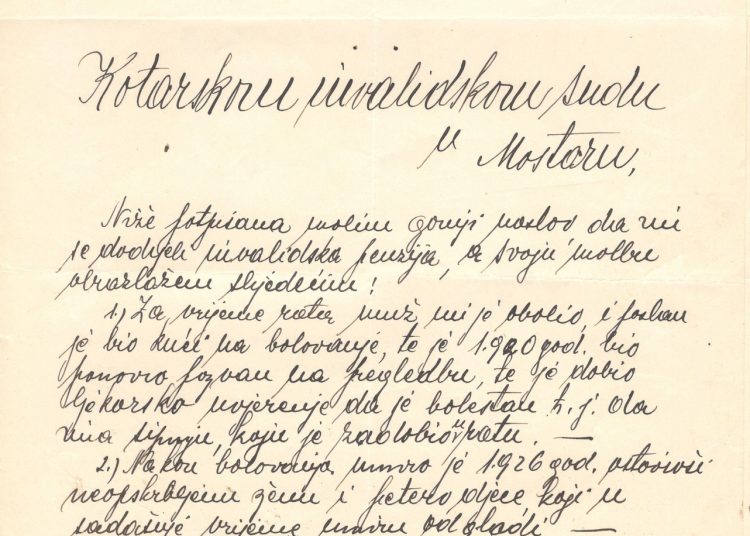 Kotarskom invalidskom sudu
u Mostaru,
Niže potpisana molim gornji naslov da mi
se dodijeli invalidska penzija, a svoju molbu
obrazlažem sljedećim!
1.) Za vrijeme rata muž mi je obolio, i poslan
je bio kući na bolovanje, te je 1920 god. bio
ponovo pozvan na pregledbu, te je dobio
ljekarsko uvjerenje da je bolestan t. j. da
ima sipnju, koju je zadobio u ratu. —
2.) Nakon bolovanja umro je 1926 god. ostavivši
neopskrbljenu ženu i petero djece, koji u
sadašnje vrijeme umiru od gladi —